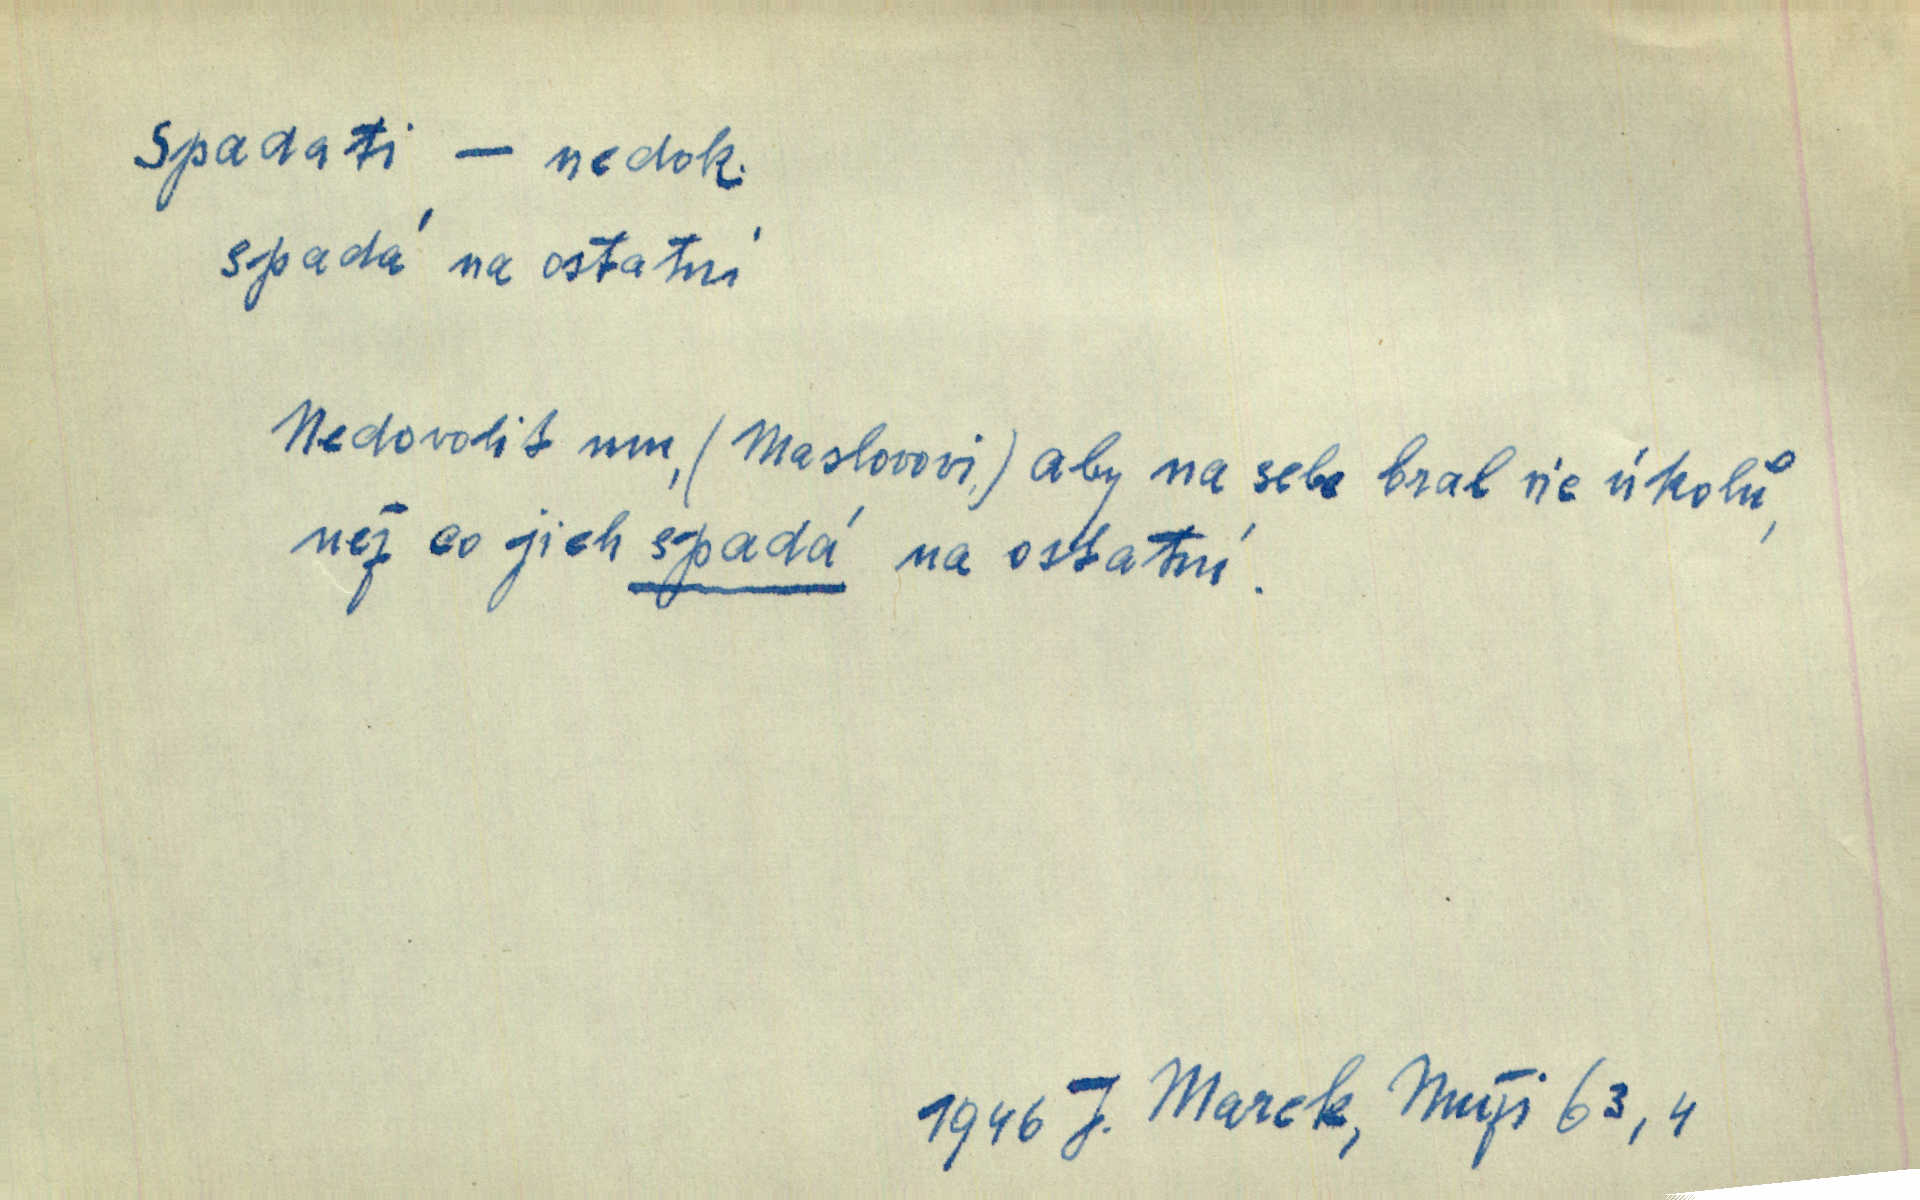 Spadati — nedok.
spadá na ostatní
Nedovolit mu, (Maslovovi,) aby na sebe bral víc úkolů,
než co jich spadá na ostatní.
1946 J. Marek, Muži 63, 4